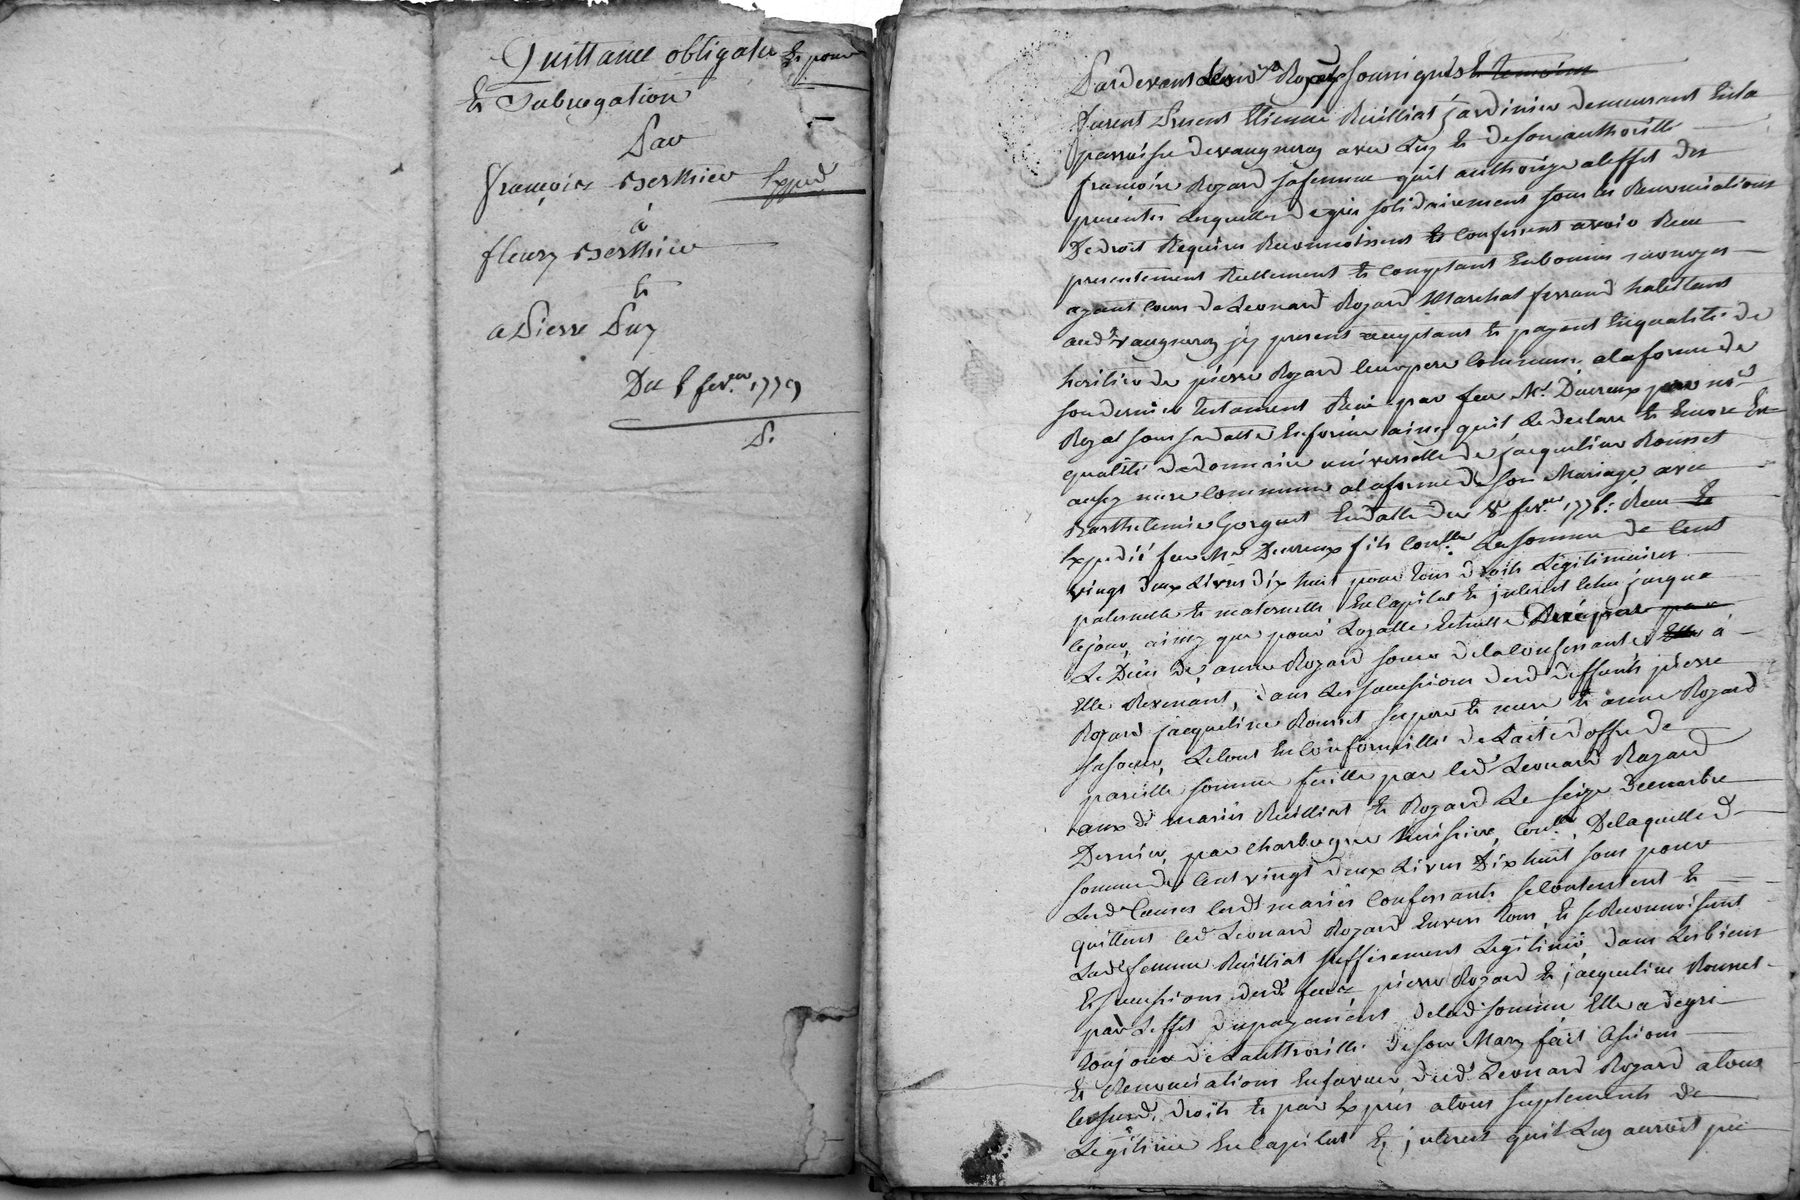 Quittance obligation Et pour
Et Subrogation
Par
françois Berthier Expéd
à
fleury Berthier
Et
a Pierre Puy
Du 6 fev.er 1779
Pardevant les no.res Royaux soussignés Et temoins
furent Present Etienne Ruilliat jardinier demeurant En la
parroisse de vaugneray avec Luy Et de son authoritté
françoise Rozard sa femme quil authorize a leffet des
presentes Lesquelles de gré solidairement sous les Renonciations
De droit Requises Reconnoissent Et confessent avoir Reçu
presentement Reellement Et Comptant En bonnes monoyes
ayant cours de Leonard Rozard Marchal ferrand habittant
aud. vaugneray jcy present acceptant Et payant En qualitté de
heritier de pierre Rozard leur pere commun, a la forme de
son dernier testament Reçu par feu M.e Ducreux pere no.re
Royal sous sa datte En forme ainsy quil Le declare Et Encore En
qualitté de donnataire universelle de jacqueline Rousset
aussy mere commune a la forme de son Mariage avec
Barthelemie Gorguet En datte du 8 fev.er 1776. Reçu Et
Expedié feu M.e Ducreux fils Con.lle La somme de Cent
vingt deux Livres dix huit pour tous droits Legitimaires
paternelle Et maternelle En Capital Et jnterest Echu jusqua
ce jour, ainsy que pour Logatte Echutte par
Le Deces de anne Rozard soeur de la confessante Elle à
Elle Revenant, dans Les successions desd deffunts pierre
Rozard jacqueline Rousset ses pere Et mere Et anne Rozard
sa soeur, Le tout En conformitté de Lacte doffre de
pareille somme faitte par led.t Leonard Rozard
aux d.ts mariés Ruilliat Et Rozard Le seize Decembre
Dernier, par Charbogne huissier, Con.llé, De laquelle d.
somme de Cent vingt deux Livres Dix huit sous pour
Lesd. Causes lesd.ts mariés Confessants se contentent Et
quittent led Leonard Rozard Envers tous, Et se Reconnoissant
Lad.e femme Ruilliat suffisement Legitimée dans Les biens
Et successions desd.t feux pierre Rozard Et jacqueline Rousset
par Leffet du payement de lad somme Elle a de gré
toujours de Lauthoritté de son Mary fait Cessions
Et Renonciations En faveur dud.t Leonard Rozard a tous
les susd. droits Et par Exprés a tous suplements de
Legitime En Capital Et jnterest quil Luy auroit pu